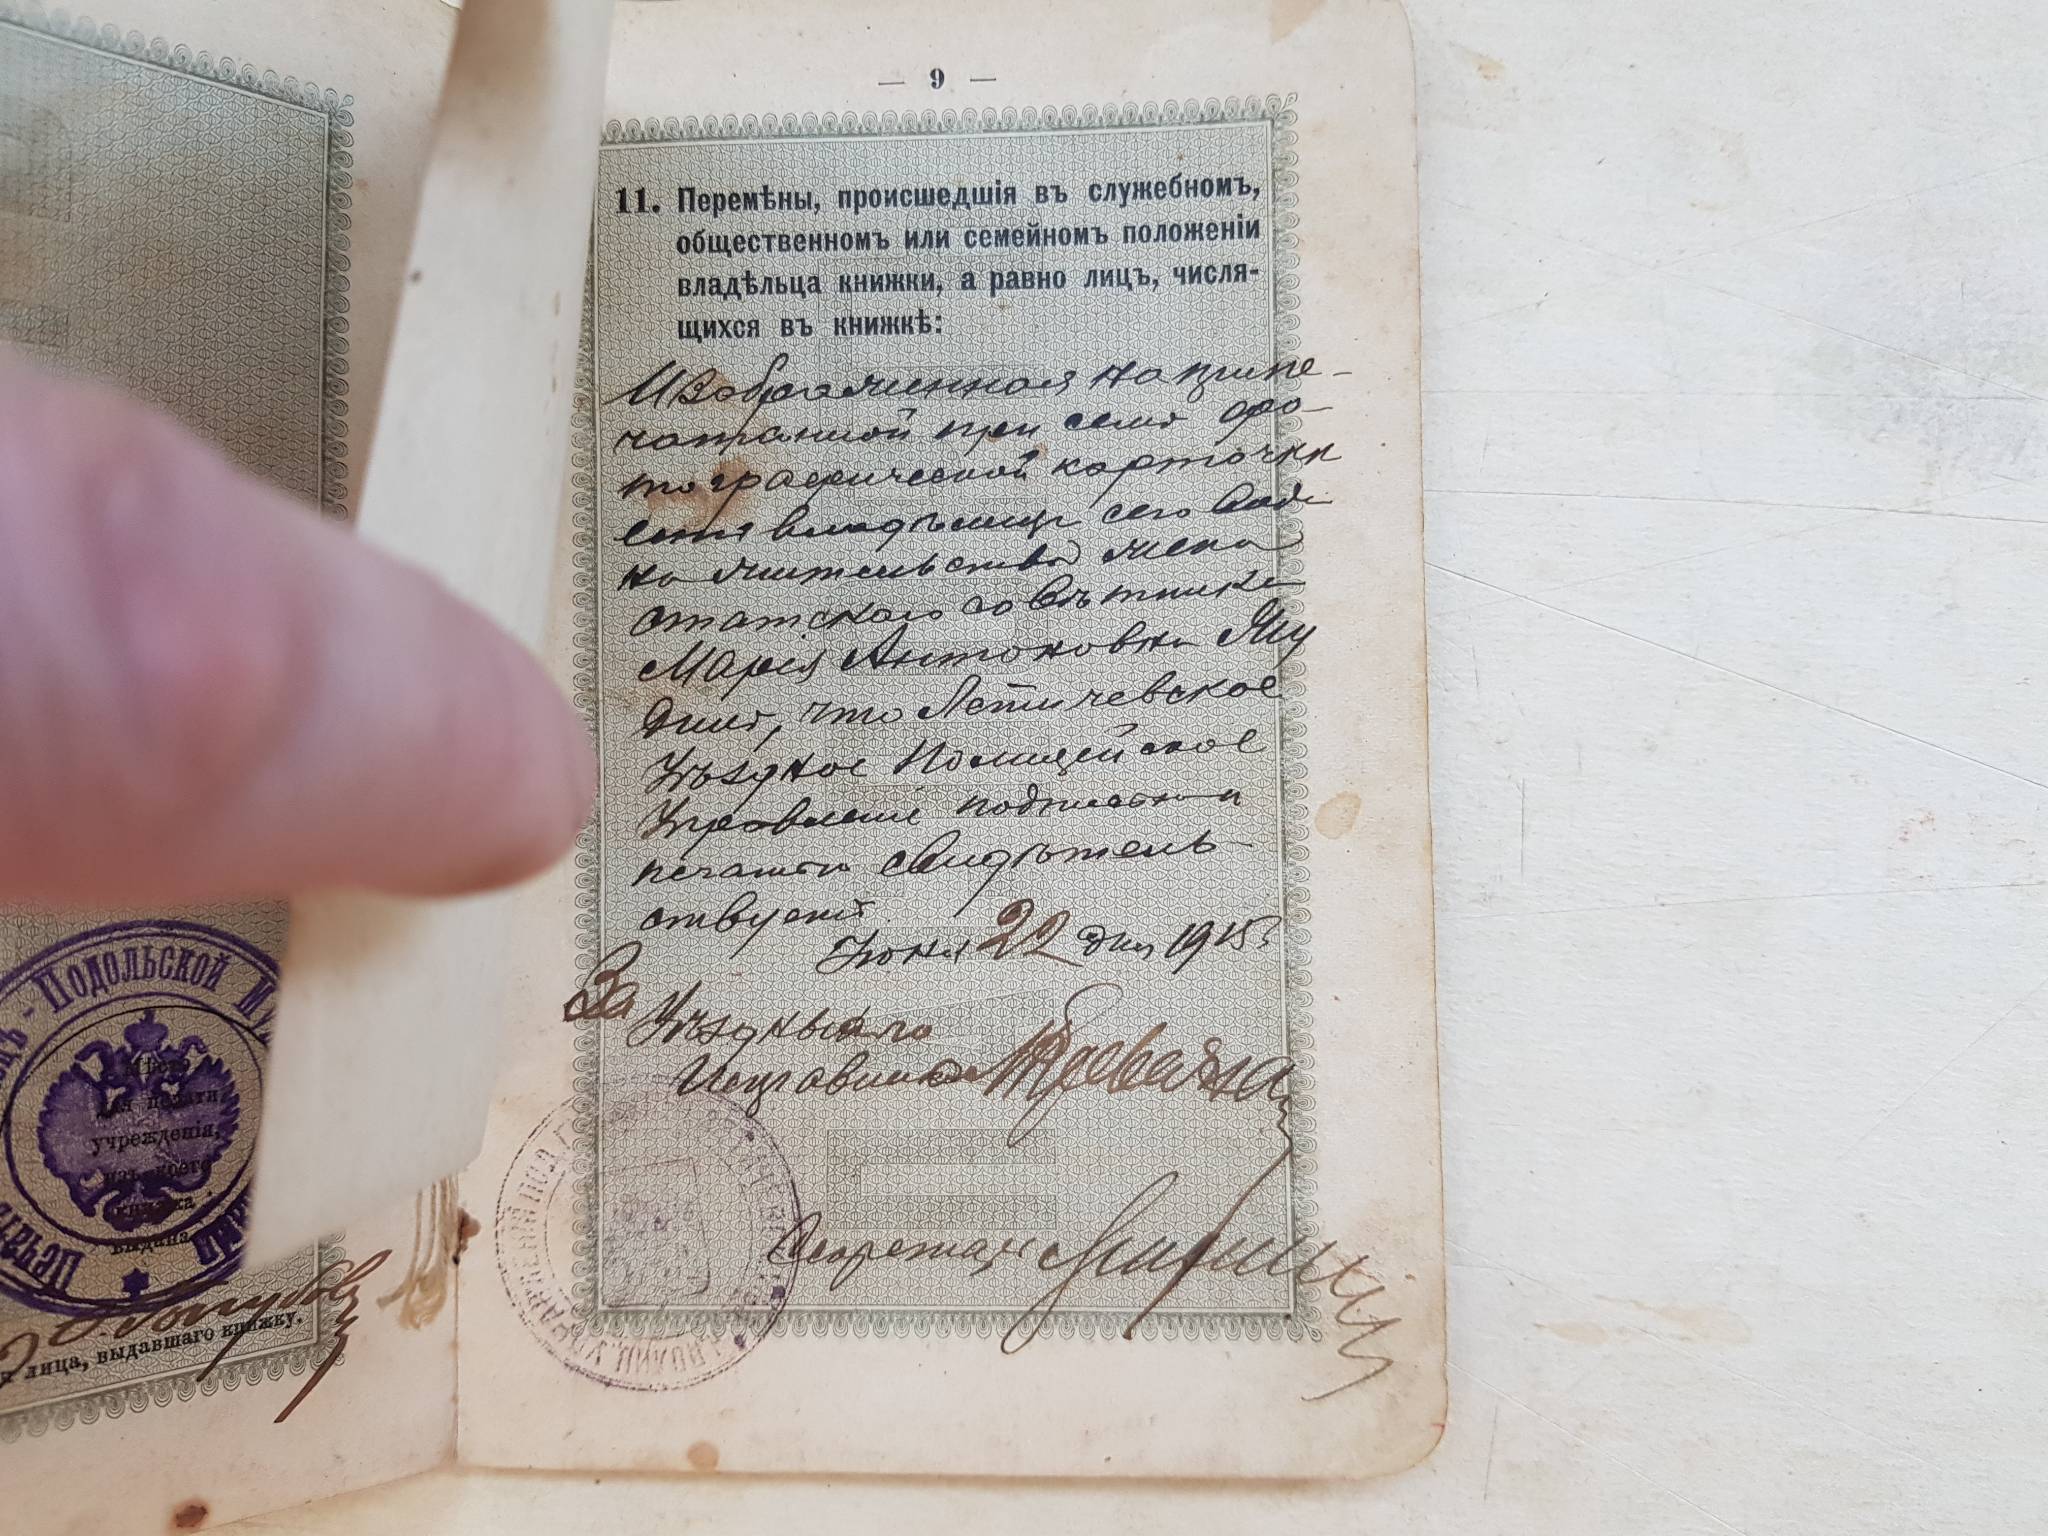 — 9 —
11. Перемѣны, происшедшія въ служебномъ,
общественномъ или семейномъ положеніи
владѣльца книжки, а равно лицъ, числя-
щихся въ книжкѣ:
Изображенная на припе-
чатанной при семъ фо-
тографической карточки
есть владѣлица сего вида
на жительство жена
статскаго совѣтника
Марія Антоновна
что Летичевское
Уѣздное Полицейское
Управленіе подписью и
печатью свидѣтель-
ствуетъ.
Іюня 22 дня 1915 г.
За Уѣзднаго
Исправника
Секретарь
-Подольской
Мѣсто
для печати
учрежденія,
изъ коего
книжка
выдана.
лица, выдавшаго книжку.